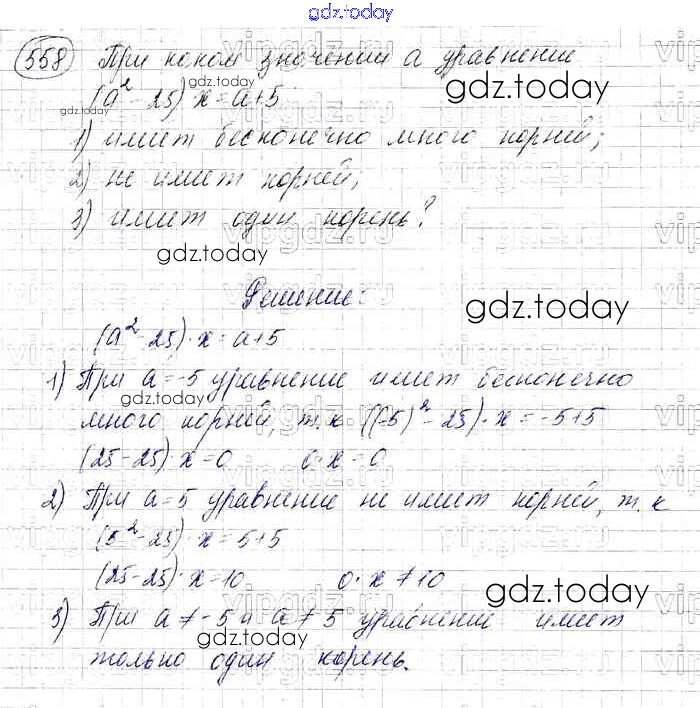 gdz.today
558 При каком значении a уравнение
(a² - 25)·x = a+5
1) имеет бесконечно много корней;
2) не имеет корней;
3) имеет один корень?
Решение:
(a² - 25)·x = a+5
1) При a = -5 уравнение имеет бесконечно
много корней, т.к ((-5)² - 25)·x = -5+5
(25-25)·x = 0 0·x = 0
2) При a = 5 уравнение не имеет корней, т.к
(5² - 25)·x = 5+5
(25-25)·x = 10 0·x ≠ 10
3) При a ≠ -5 и a ≠ 5 уравнение имеет
только один корень.